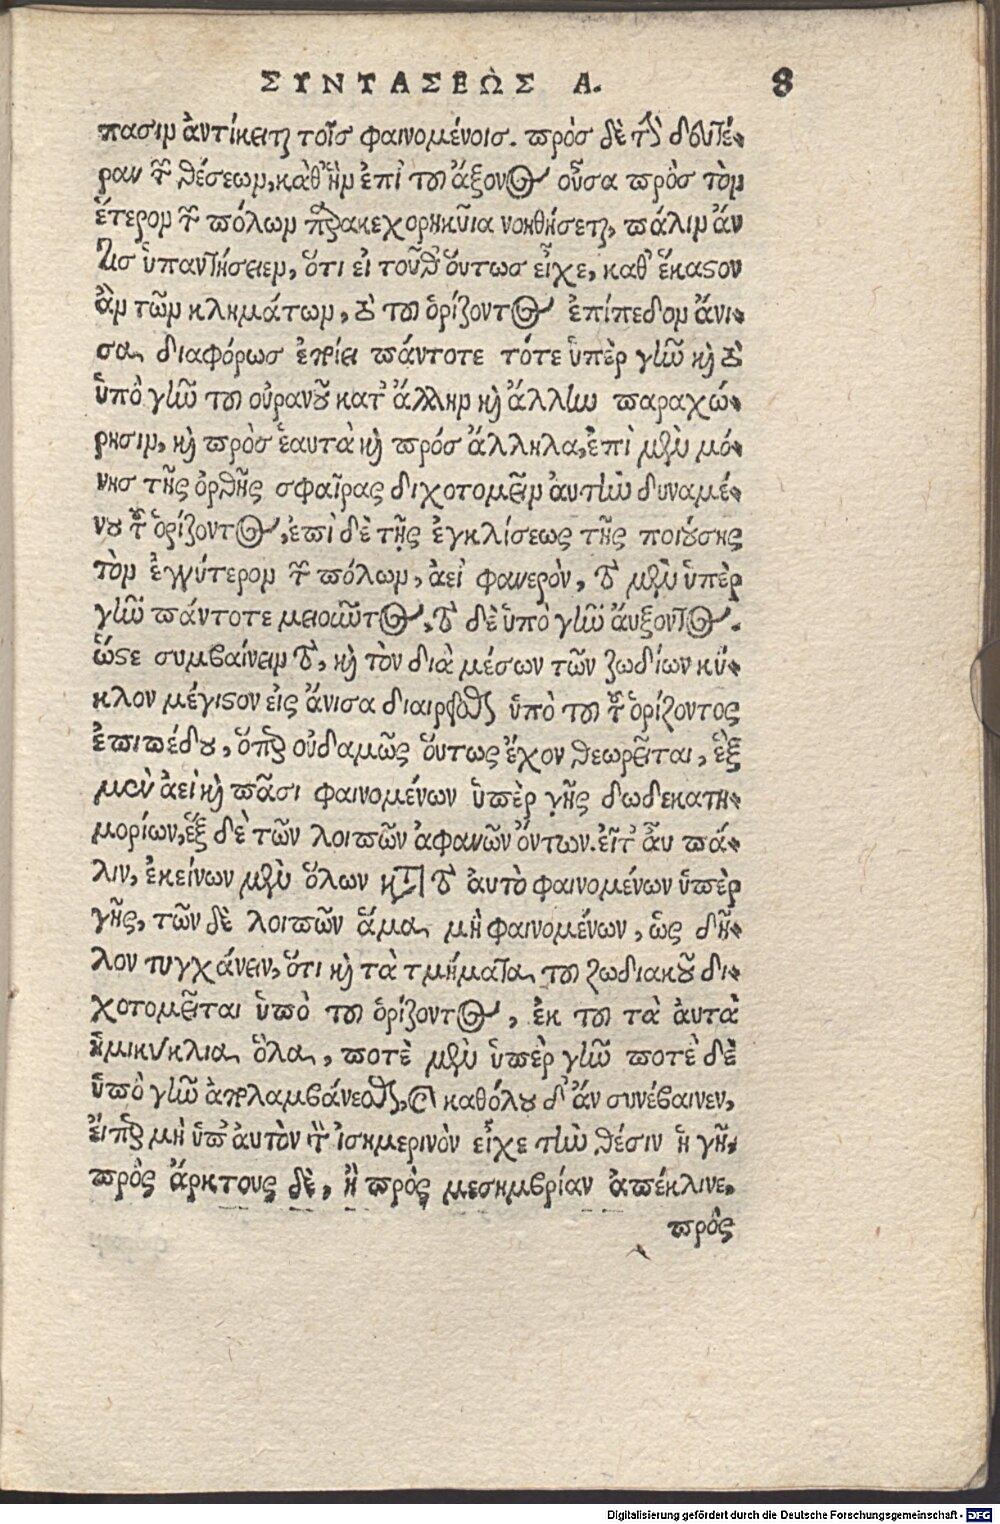 ΣΥΝΤΑΣΕῺΣ Α. 8
πασιν ἀντίκειται τοῖς φαινομένοις. πρὸς δὲ τὴν δευτέ-
ραν τῶν θέσεων, καθ' ἣν ἐπὶ τοῦ ἄξονος οὖσα πρὸς τὸν
ἕτερον τῶν πόλων παρακεχορηκῦια νοηθήσεται, πάλιν ἄν
τις ὑπαντήσειεν, ὅτι εἰ τοῦθ' ὅυτως εἶχε, καθ' ἕκαστον
ἂν τῶν κλημάτων, τὸ τοῦ ὁρίζοντος ἐπίπεδον ἄνι-
σα διαφόρως ἐποίει πάντοτε τότε ὑπὲρ γῆν καὶ τὸ
ὑπὸ γῆν τοῦ οὐρανοῦ κατ' ἄλλην καὶ ἄλλην παραχώ-
ρησιν, καὶ πρὸς ἑαυτὰ καὶ πρός ἄλληλα, ἐπὶ μὲν μό-
νης τῆς ὀρθῆς σφαῖρας διχοτομεῖν ἀυτὴν δυναμέ-
νου τοῦ ὁρίζοντος, ἐπὶ δὲ τῆς ἐγκλίσεως τῆς ποιούσης
τὸν ἐγγύτερον τῶν πόλων, ἀεὶ φανερὸν, τοῦ μὲν ὑπὲρ
γῆν πάντοτε μειοῦντος, τοῦ δὲ ὑπὸ γῆν ἄυξοντος.
ὥστε συμβαίνειν τὸ, καὶ τὸν διὰ μέσων τῶν ζωδίων κύ-
κλον μέγιστον εἰς ἄνισα διαιρεῖσθαι ὑπὸ τοῦ τοῦ ὁρίζοντος
ἐπιπέδου, ὅπερ οὐδαμῶς ὅυτως ἔχον θεωρεῖται, ἓξ
μὲν ἀεὶ καὶ πᾶσι φαινομένων ὑπὲρ γῆς δωδεκατη-
μορίων, ἓξ δὲ τῶν λοιπῶν ἀφανῶν ὄντων. εἶτ' ἆυ πά-
λιν, ἐκείνων μὲν ὅλων κατὰ τὸ ἀυτὸ φαινομένων ὑπὲρ
γῆς, τῶν δὲ λοιπῶν ἅμα μὴ φαινομένων, ὡς δῆ-
λον τυγχάνειν, ὅτι καὶ τὰ τμήματα τοῦ ζωδιακοῦ δι-
χοτομεῖται ὑπὸ τοῦ ὁρίζοντος, ἐκ τοῦ τὰ ἀυτὰ
ἡμικύκλια ὅλα, ποτὲ μὲν ὑπὲρ γῆν ποτὲ δὲ
ὑπὸ γῆν ἀπολαμβάνεσθαι, καὶ καθόλου δ' ἂν συνέβαινεν,
ἔιπερ μὴ ὑπ' ἀυτὸν τὸν ἰσημερινὸν εἶχε τὴν θέσιν ἡ γῆ,
πρὸς ἄρκτους δὲ, ἢ πρὸς μεσημβρίαν ἀπέκλινε,
πρὸς
Digitalisierung gefördert durch die Deutsche Forschungsgemeinschaft - DFG